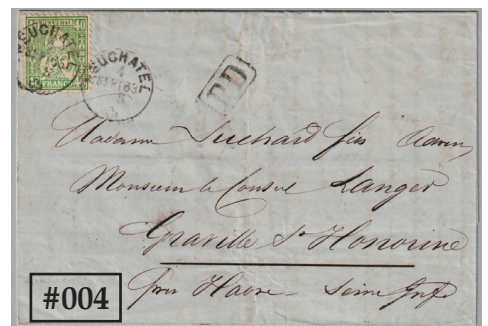 HELVETIA 40
FRANCO
NEUCHATEL
NEUCHATEL
4
SEPT 63
S
PD
Madame Suchard fils Adr
Monsieur le Consul Langer
Graville St Honorine
près Havre – Seine Infre
#004